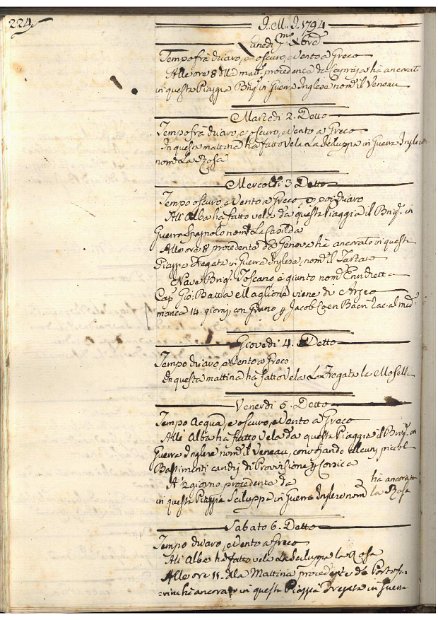 224.
J. M. J. 1794
Lunedì P.mo Xbre
Tempo frà chiaro, e oscuro, e Vento a Greco
Alle ore 8 della matt.a procedente da Capraja ha ancorato
in questa Piaggia Brig.o in Guerra Inglese nom.o il Veneau
Martedì 2. Detto
Tempo frà chiaro, e oscuro, e Vento a Greco
In questa mattina ha fatto Vela La Scluppa in Guerra Inglese
nom.a La Rosa
Mercoldì 3. Detto
Tempo oscuro, e Vento a Greco, e poi chiaro
All'Alba ha fatto vela da questa Piaggia il Brig.o in
Guerra Spagnolo nom.o
Alle ore 8 procedente da Genova ha ancorato in questa
Piaggia Fregata in Guerra Inglese, nom.a il Tartaro
Nave Brig.o Toscano è giunto nom.o Enrichetta
Cap. Gio: Batta viene di
manca 14 giorni con Grano p. Jacob Coen Bacri
Giovedì 4. Detto
Tempo chiaro, e Vento a Greco
In questa mattina ha fatto Vela La Fregata le Mosell
Venerdì 5. Detto
Tempo Acqua, e oscuro, e Vento a Greco
All'Alba ha fatto Vela da questa Piaggia il Brig.o in
Guerra Inglese nom.o il Veneau, convojando alcuni piccoli
Bastimenti carichi di Provisione p. Corsica
A 2 giorno procedente da ha ancorato
in questa Piaggia Scluppa in Guerra Inglese nom.a la Rosa
Sabato 6. Detto
Tempo chiaro, e Vento a Greco
All'Alba ha fatto vela La Scluppa la Rosa
Alle ore 11. della Mattina procedente da Portof
ha ancorato in questa Piaggia Fregata in Guerra